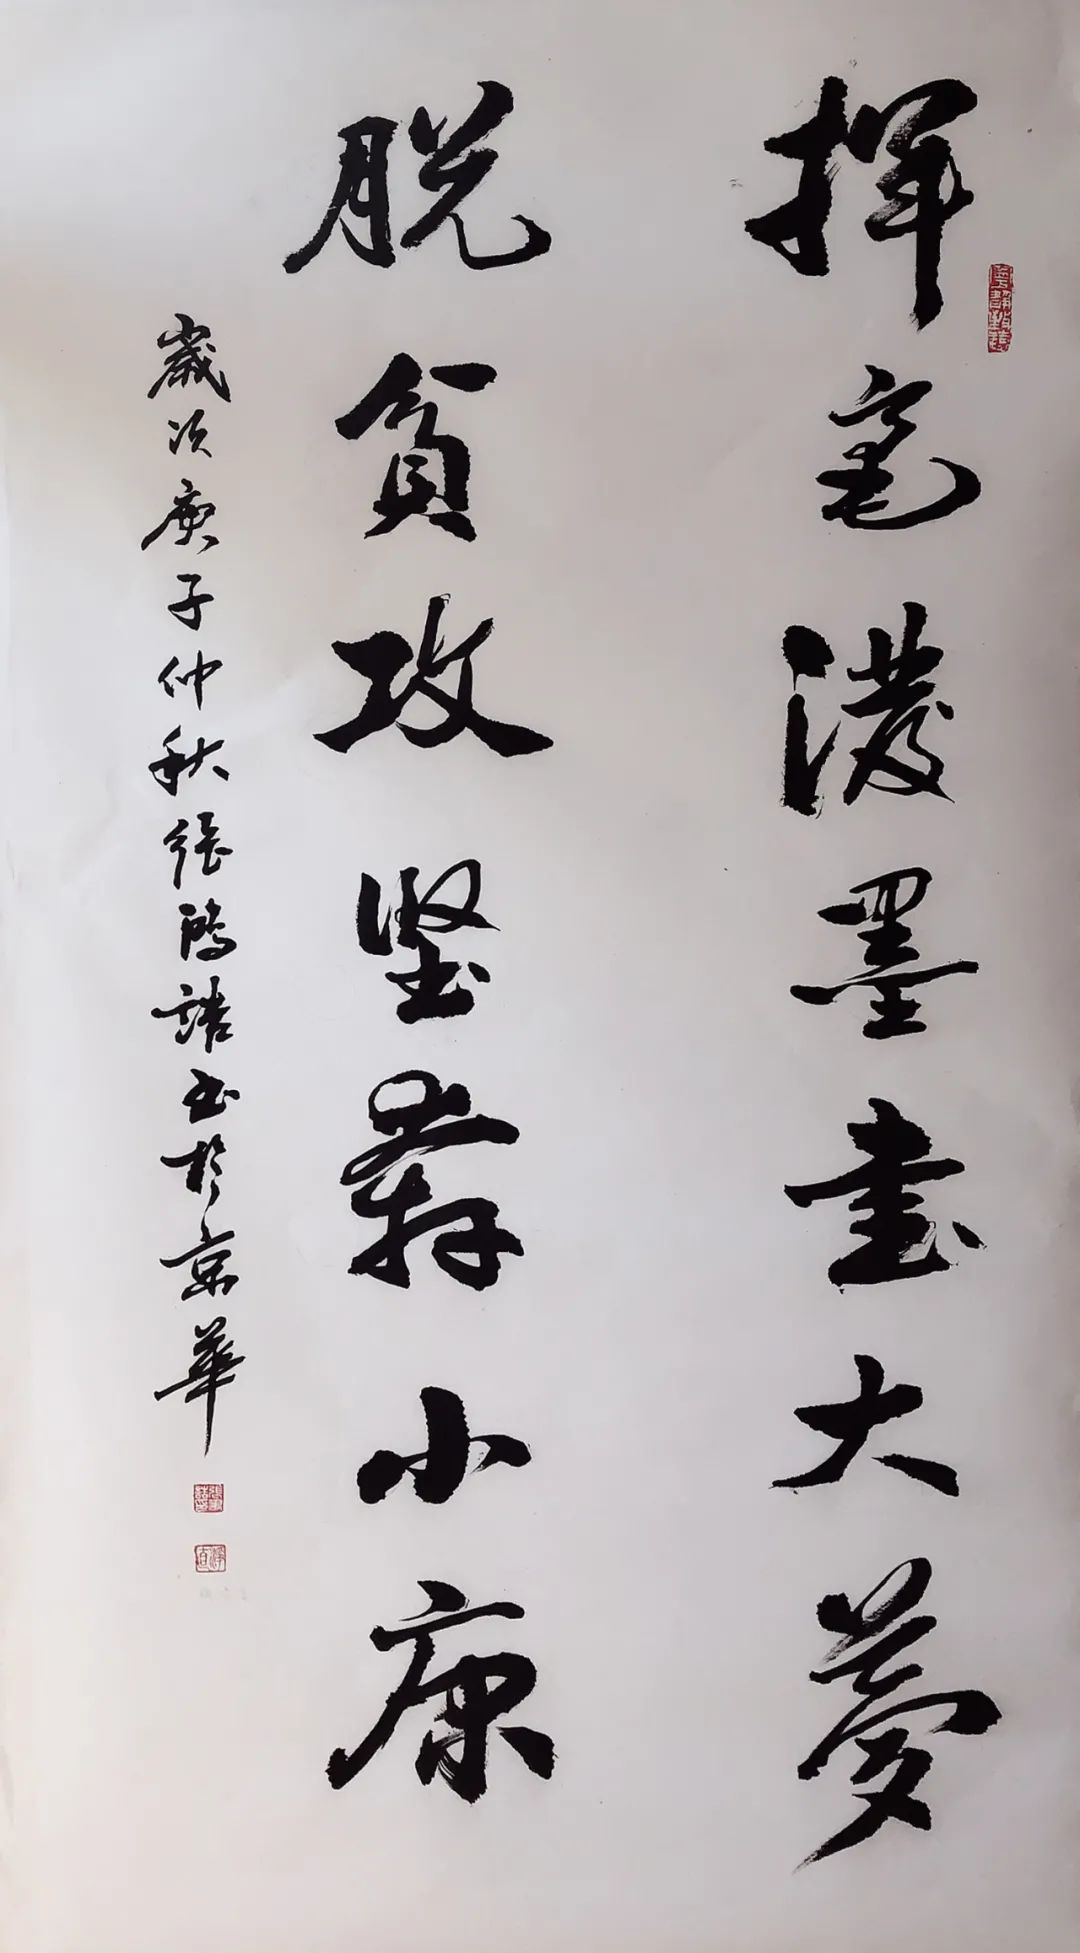 揮毫潑墨畫大夢
脱貧攻坚奔小康
歲次庚子仲秋張書於京華